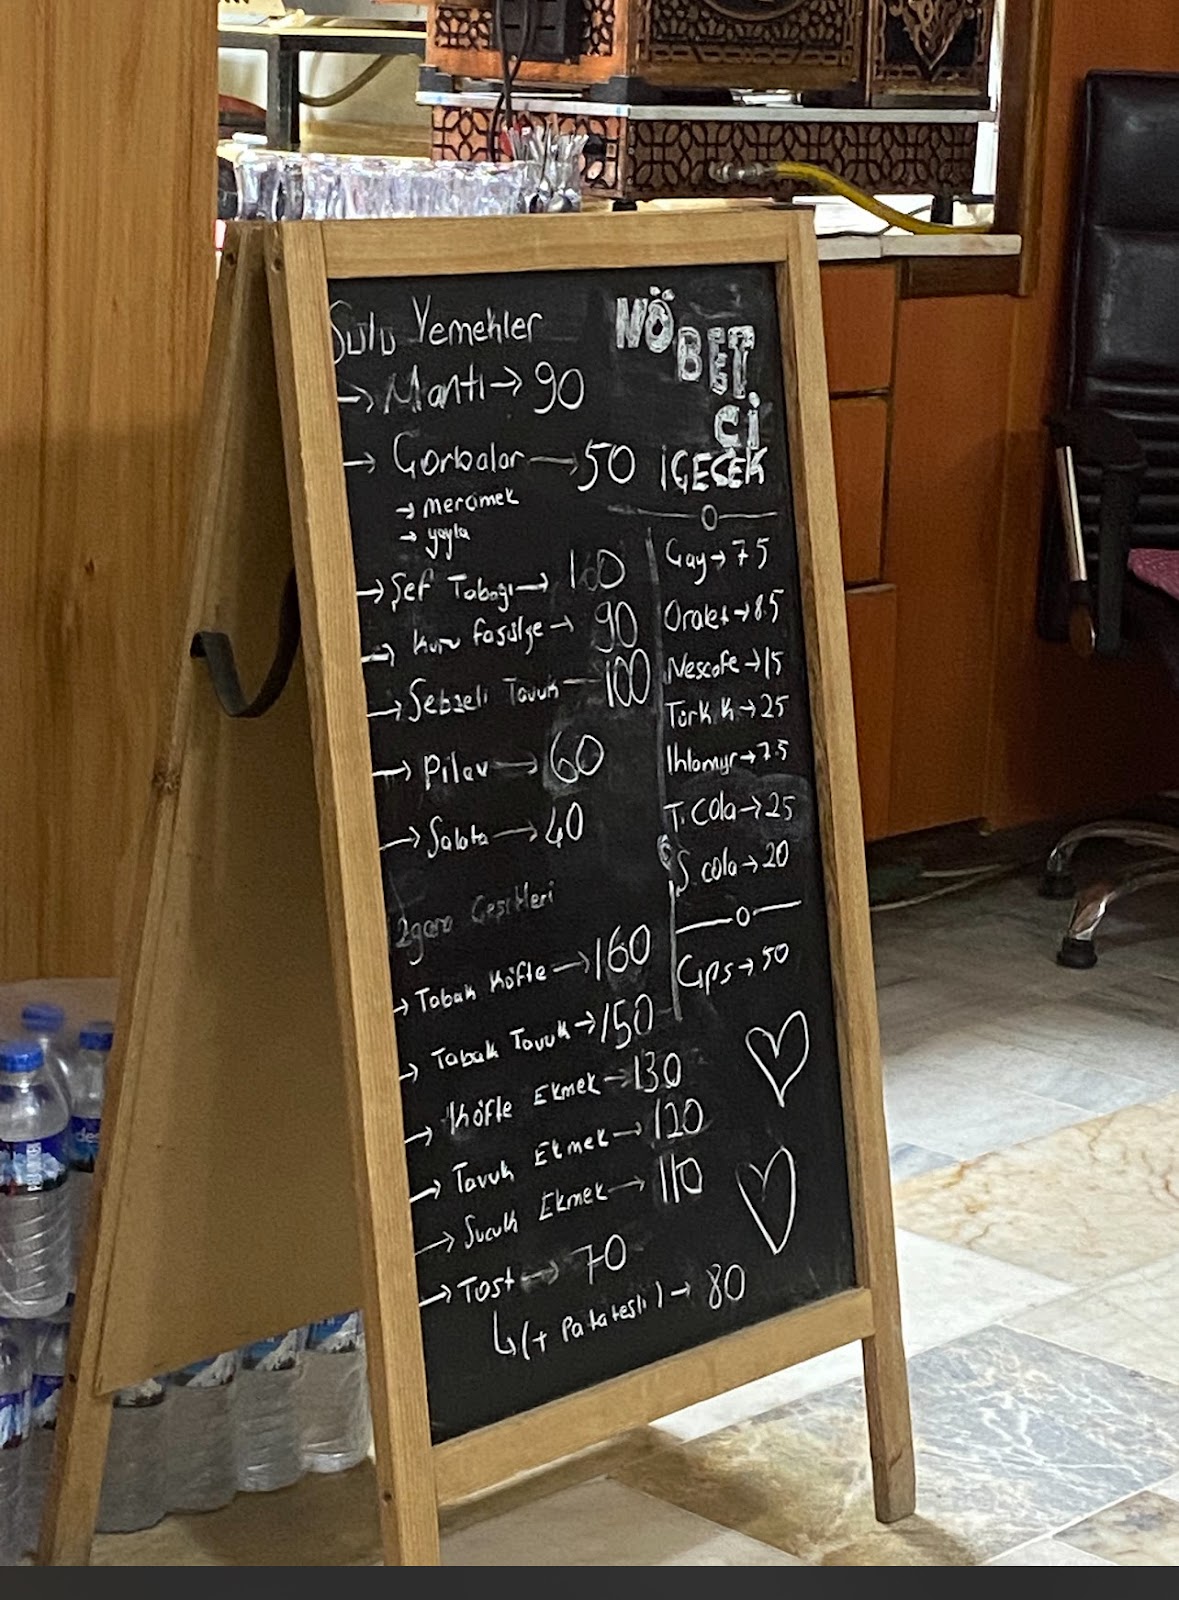 Sulu Yemekler
→ Mantı → 90
→ Çorbalar → 50
→ mercimek
→ yayla
→ Şef Tabağı →
→ Kuru fasülye → 90
→ Sebzeli Tavuk → 100
→ Pilav → 60
→ Salata → 40
Izgara Çeşitleri
→ Tabak Köfte → 160
→ Tabak Tavuk → 150
→ Köfte Ekmek → 130
→ Tavuk Ekmek → 120
→ Sucuk Ekmek → 110
→ Tost → 70
↳ (+ Patatesli) → 80
NÖ
BET
Çİ
İÇECEK
Çay → 7.5
Oralet → 8.5
Nescafe → 15
Türk K → 25
Ihlamur → 7.5
T. Cola → 25
Ş. cola → 20
Cips → 50